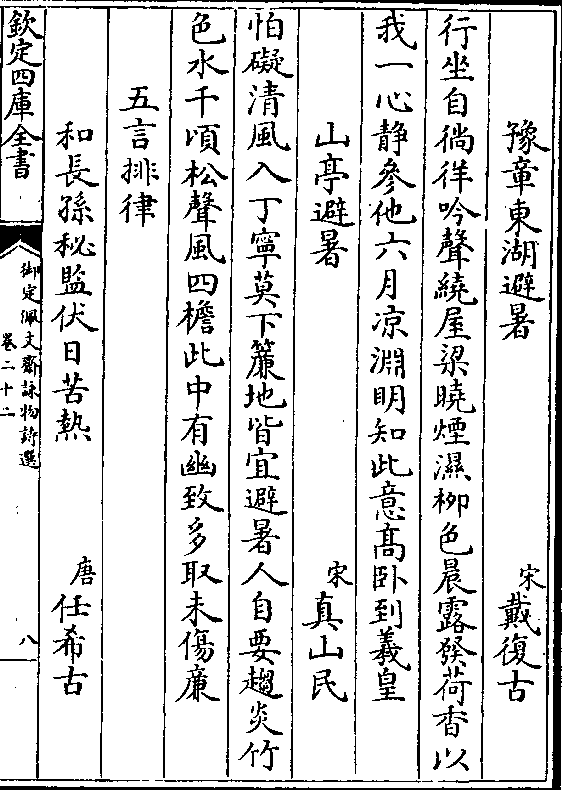 豫章東湖避暑 宋戴復古
行坐自徜徉吟聲繞屋梁曉煙濕柳色晨露發荷香以
我一心静參他六月凉淵明知此意髙臥到羲皇
山亭避暑 宋真山民
怕礙清風入丁寧莫下簾地皆宜避暑人自要趨炎竹
色水千頃松聲風四檐此中有幽致多取未傷廉
五言排律
和長孫秘監伏日苦熱 唐任希古
欽定四庫全書
御定佩文齋詠物詩選
卷二十二
八